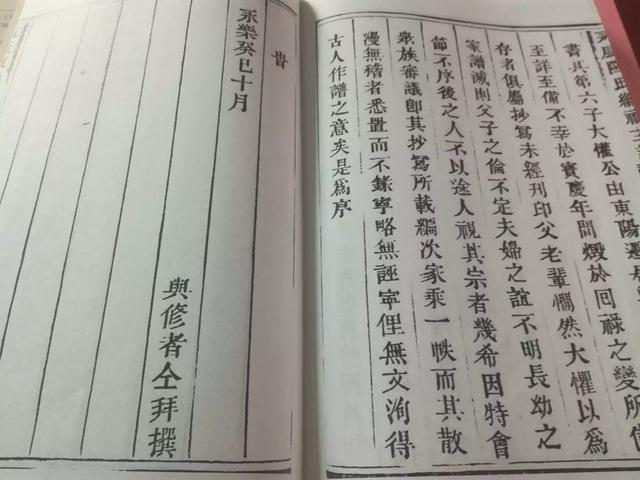 書其第六子大權公由東陽遷
至詳至備不幸於寶慶年間燬於回祿之變所
存者俱屬抄寫未經刊印父老輩惘然大懼以為
家譜滅則父子之倫不定夫婦之誼不明長幼之
節不序後之人不以途人視其宗者幾希因特會
眾族審議即其抄寫所載編次家乘一帙而其散
漫無稽者悉置而不錄寧略無誣寧俚無文洵得
古人作譜之意矣是為序
旹
永樂癸巳十月
與修者仝拜撰